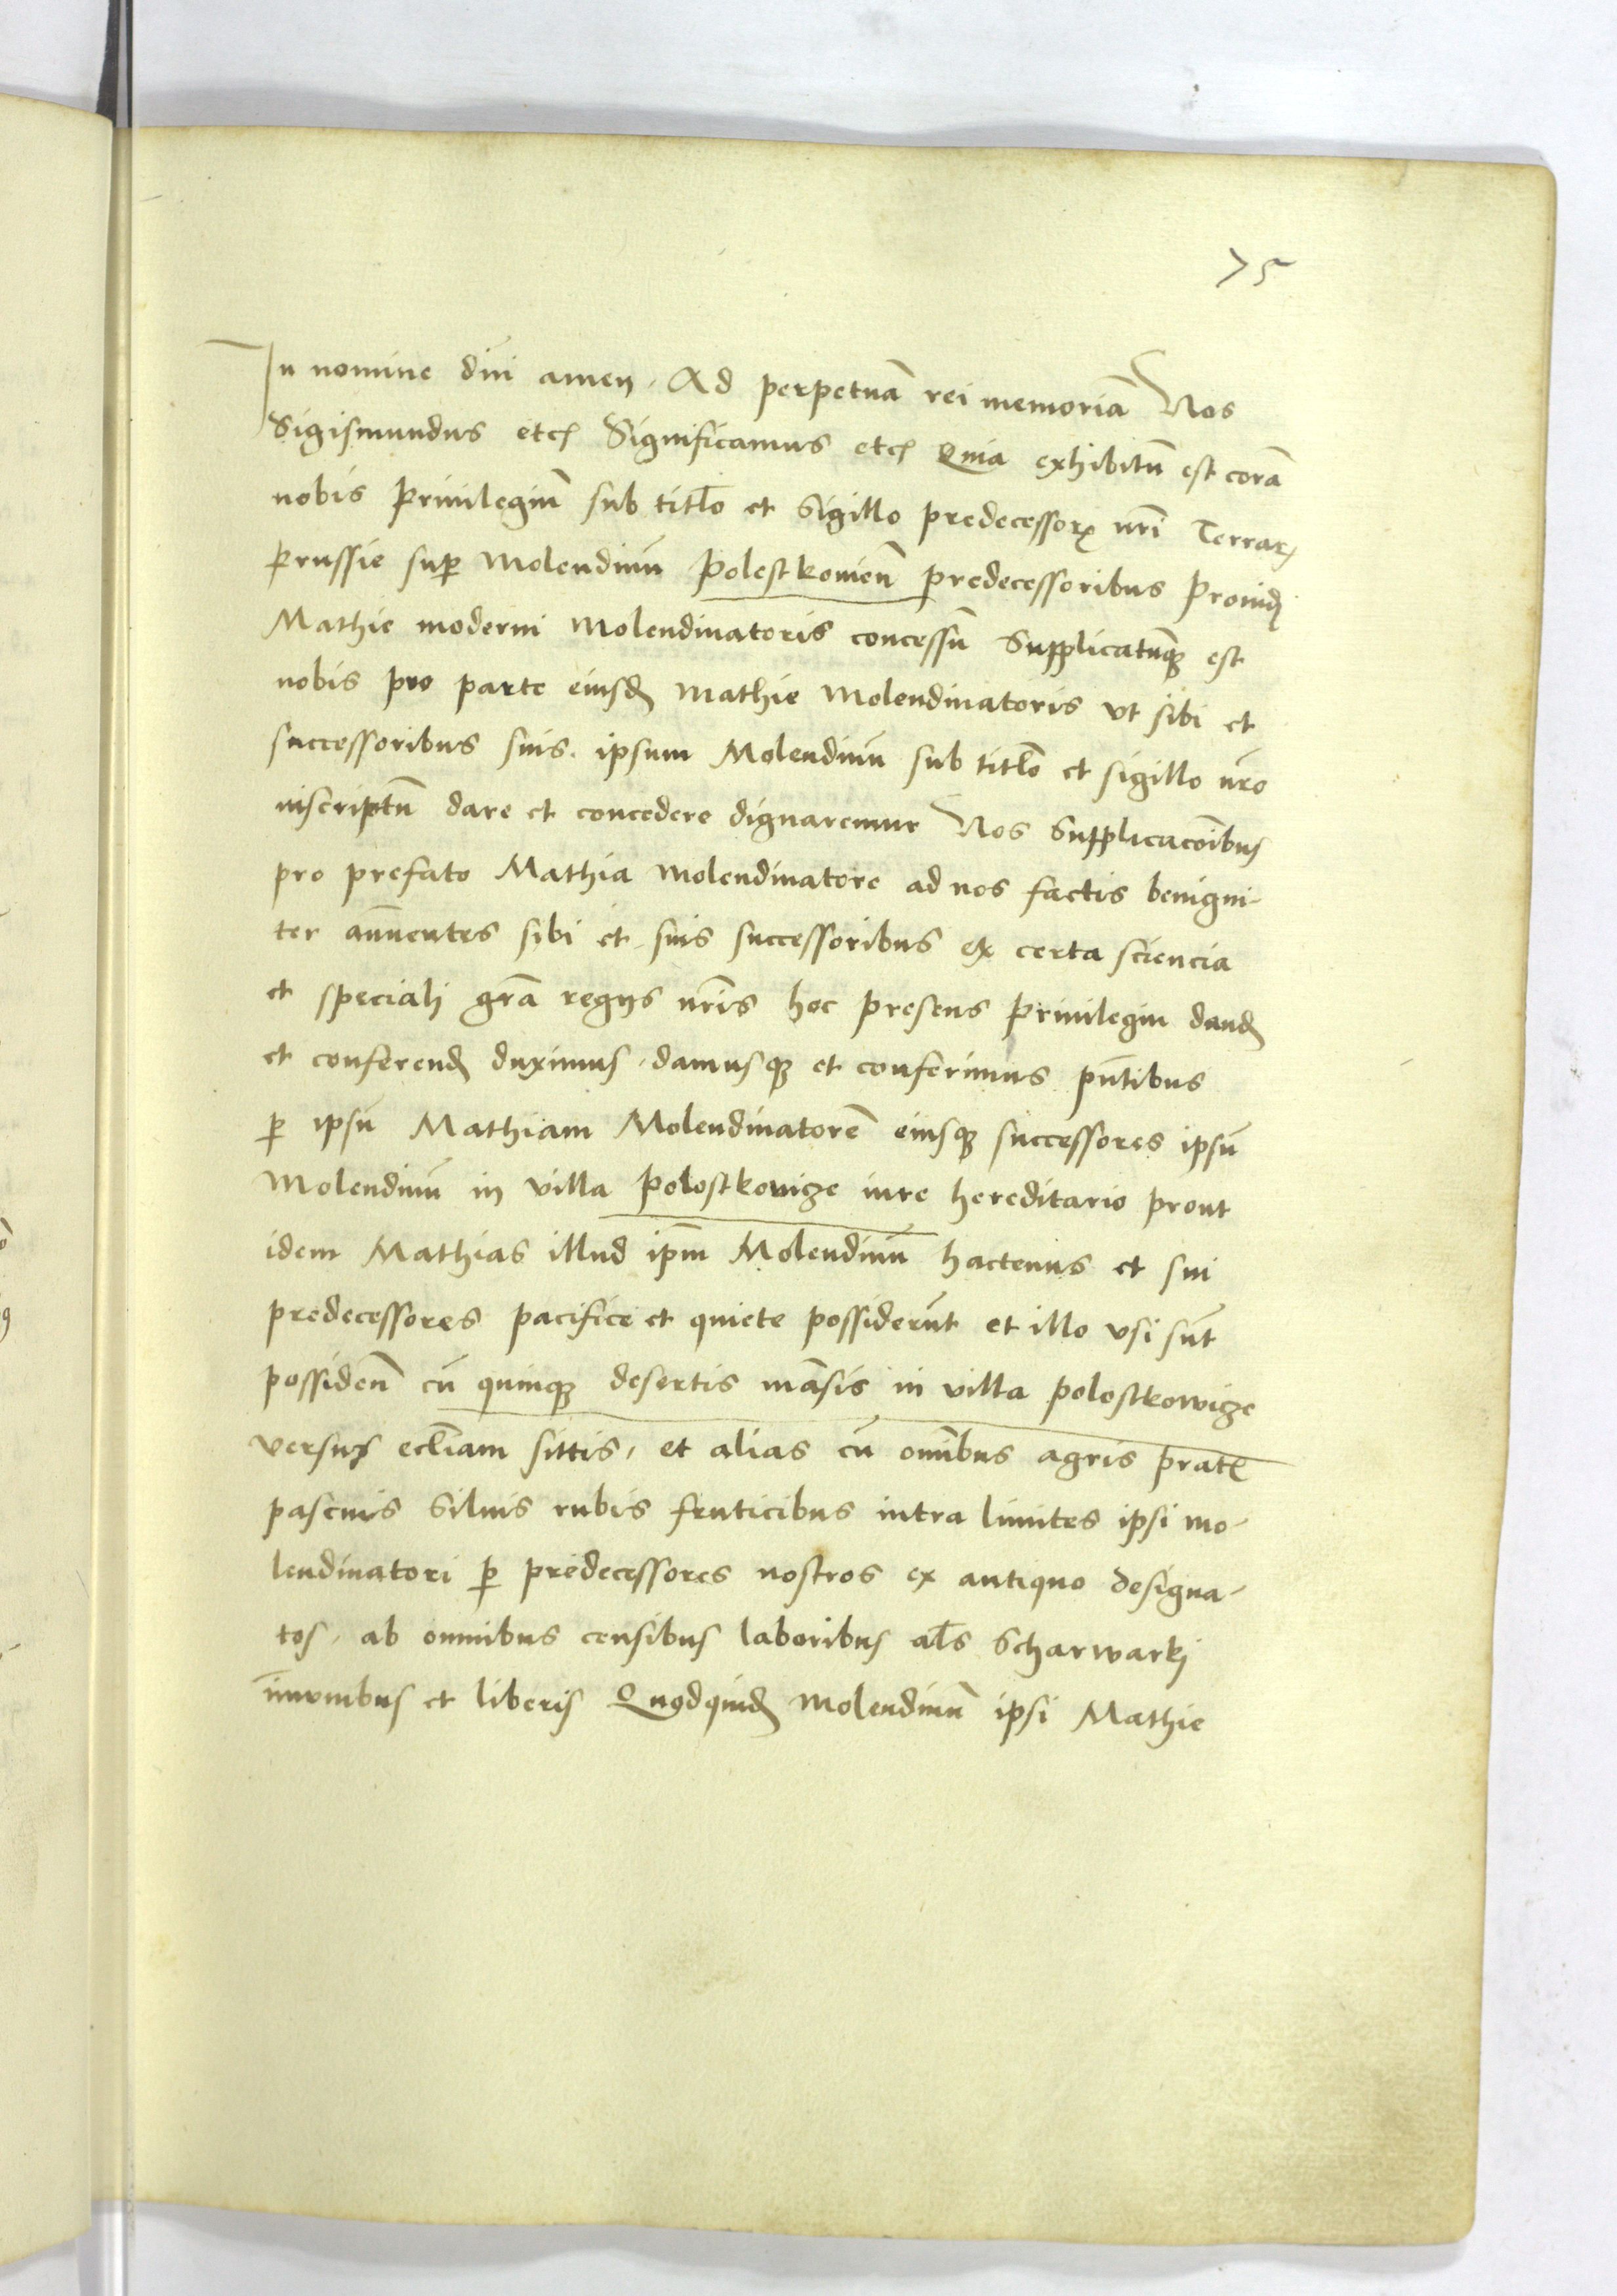 75
In nomine dni amen. Ad perpetuā rei memoriā Nos
Sigismundus etc Significamus etc Quia exhibitū est corā
nobis Priuilegiū sub titlo et Sigillo predecessorꝝ nrī Terrarꝝ
Prussie sup Molendinū Polestkouien̄ predecessoribus Prouid
Mathie moderni Molendinatoris concessū Supplicatūqꝫ est
nobis pro parte eiusd Mathie Molendinatoris vt sibi et
successoribus suis ipsum Molendinū sub titlo et sigillo nr̄o
inscriptū dare et concedere dignaremur Nos Supplicacōibus
pro prefato Mathia Molendinatore ad nos factis benigni-
ter annūentes sibi et suis successoribus ex certa sciencia
et speciali grā regijs nrīs hoc presens Priuilegiu dand
et conferend duximus. damusqꝫ et conferimus pn̄tibus
ꝑ ipsū Mathiam Molendinatorē eiusqꝫ successores ipsū
Molendinū in villa Polostkovicze iure hereditario prout
idem Mathias illud ipm̄ Molendinū hactenus et sui
predecessores pacifice et quiete possiderūt et illo vsi sūt
possidēn cū quinqꝫ desertis māsis in villa polostkowicze
versus eccliam sittis, et alias cū omībus agris pratꝭ
pascuis Siluis rubis fruticibus intra limites ipsi mo-
lendinatori ꝑ predecessores nostros ex antiquo designa-
tos. ab omnibus censibus laboribus als Scharwarkj
īmunibus et liberis Quodquid Molendinū ipsi Mathie